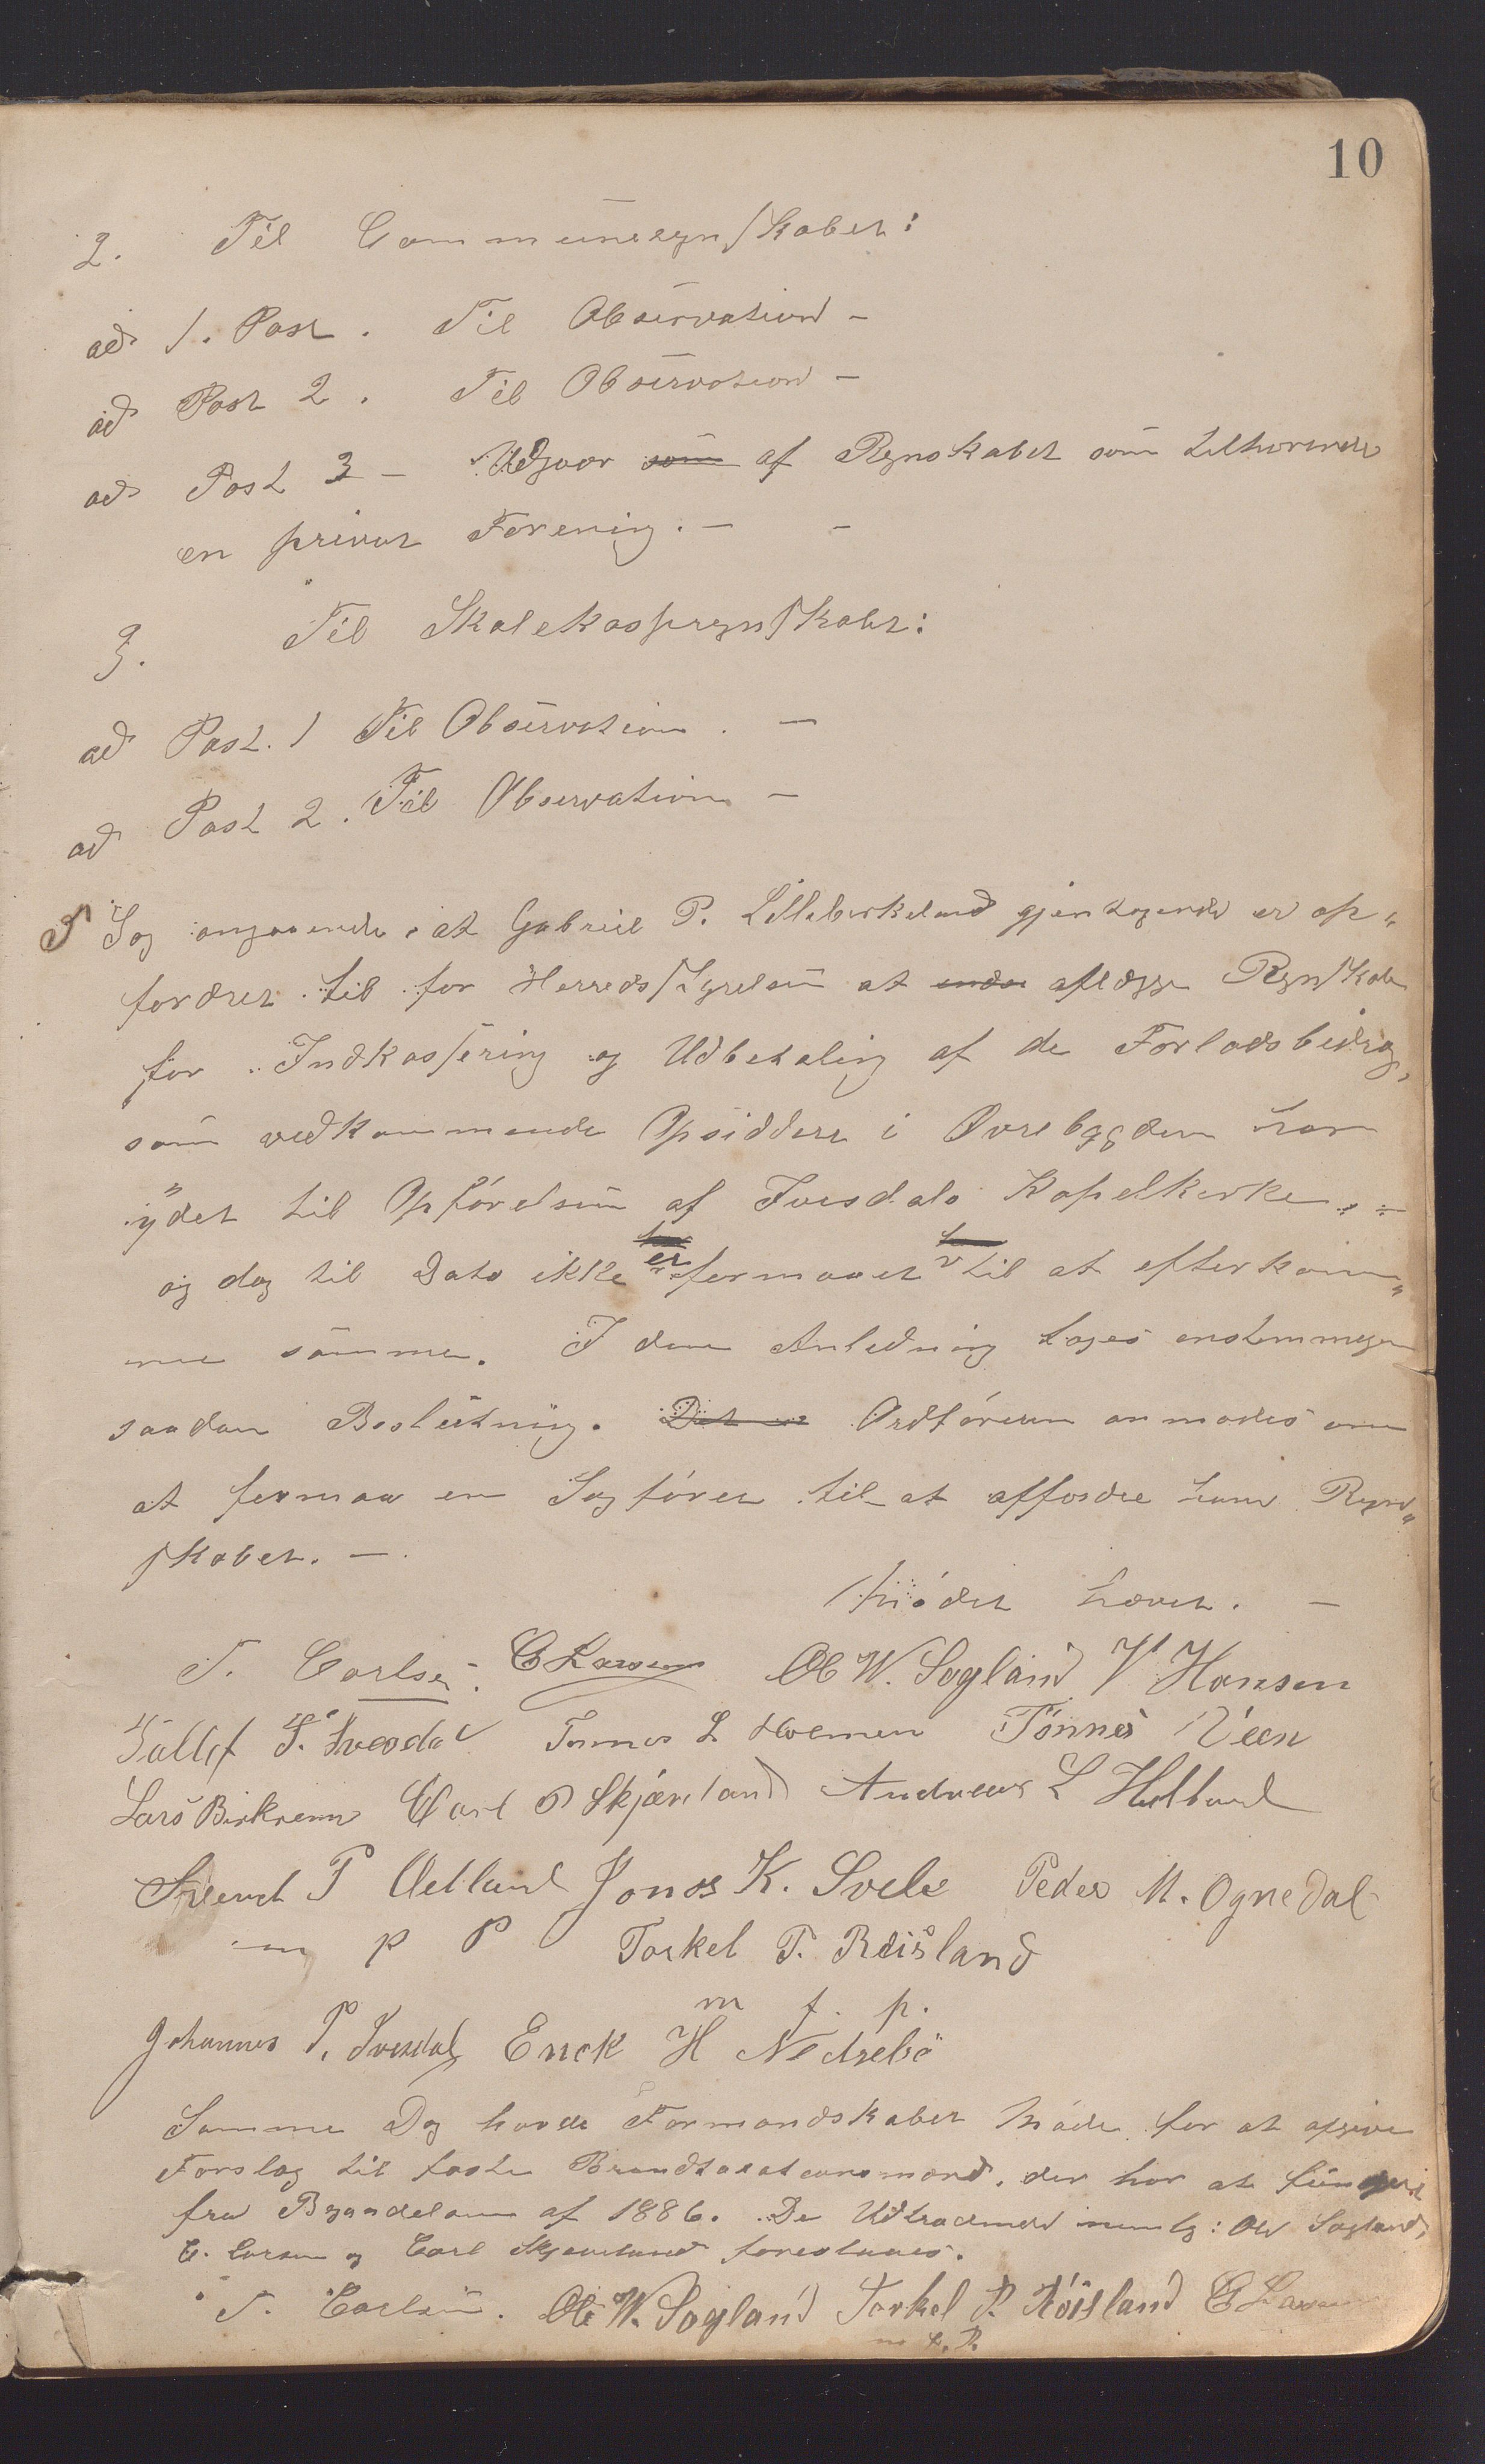 10
2. Til Communeregnskabet:
ad 1. Post. Til Observation –
ad Post 2. Til Observation –
ad Post 3 – Udgaar som af Regnskabet som tilhørende
en privat Forening. – –
3. Til Skolekasseregnskabet:
ad Post. 1 Til Observation. –
ad Post 2. Til Observation –
5 Sag angaaende, at Gabriel P. Lillebirkeland gjentagende er op„
fordret til for Herredsstyrelsen at aflægge Regnskab
for Indkassering og Udbetaling af de Forladsbidrag,
som vedkommende Opsiddere i Øvrebygden har
ydet til Opførelsen af Ivesdals Kapelkirke, –
og dog til Dato ikke er formaaet til at efterkom„
me samme. I den Anledning toges enstemmigen
saadan Beslutning. Ordføreren anmodes om
at formaa en Sagfører til at affordre ham Regn„
skabet. –
Mødet hævet. –
T. Carlsen. C Larsen Ole W. Sagland V Hansen
Tollef T. Ivesdal Tønnes L Holmen Tønnes Veen
Lars Birkrem Carl P Skjæveland Andreas L Hetland
Svend P Uelland Jonas K. Svele Peder M. Ognedal
m p P Torkel P. Røisland
m f. p.
Johannes P. Ivesdal, Enok H Nedrebø
Samme Dag havde Formandskabet Møde for at afgive
Forslag til faste Brandtaxationsmænd, der har at fungere
fra Begyndelsen af 1886. De Udtrædende nemlig: Ole Sagland,
C. Larsen og Carl Skjæveland foresloges.
T. Carlsen. Ole W. Sagland Torkel P. Röisland C Larsen
m f. P.